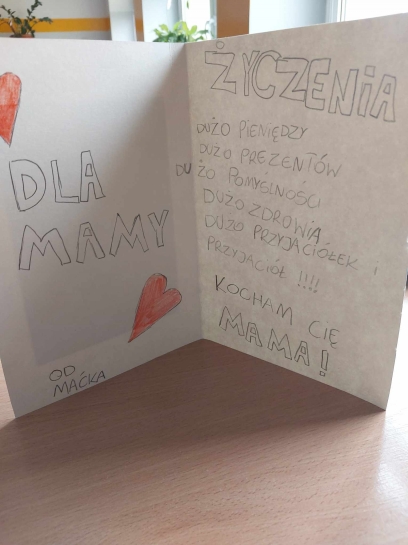 DLA
MAMY
OD
MAĆKA
ŻYCZENIA
DUŻO PIENIĘDZY
DUŻO PREZENTÓW
DUŻO POMYŚLNOŚCI
DUŻO ZDROWIA
DUŻO PRZYJACIÓŁEK I
PRZYJACIÓŁ !!!!
KOCHAM CIĘ
MAMA!